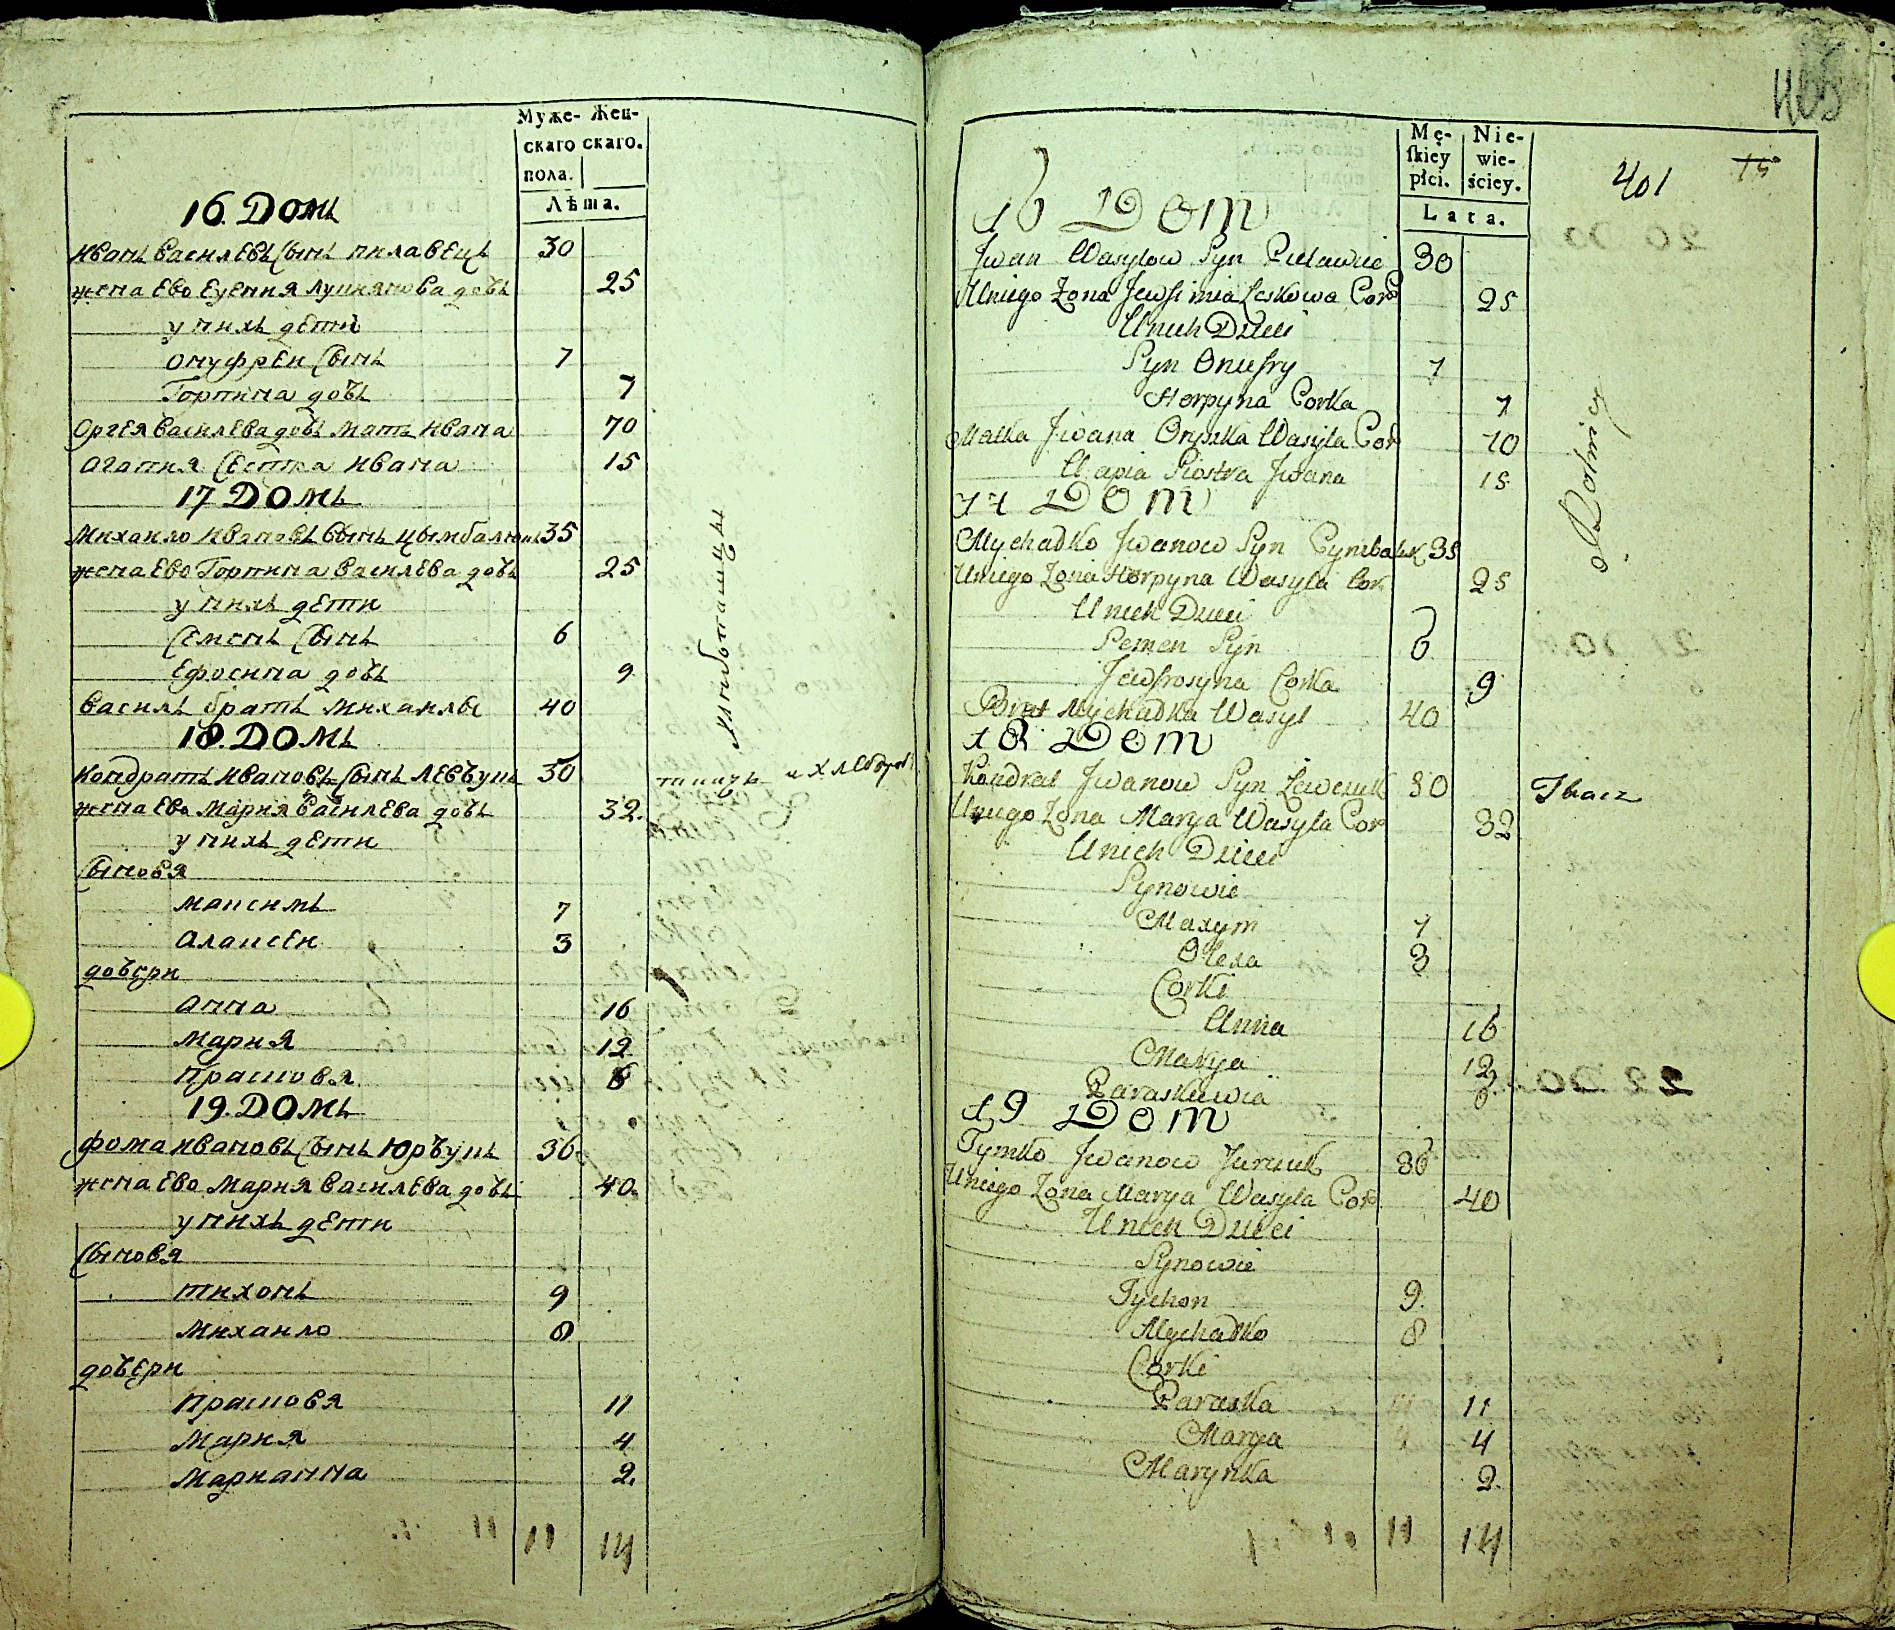 Муже- Жен-
скаго скаго.
пола.
Лѣта.
16. Домъ
Иванъ Василевъ Сынъ пилавецъ 30
жена Ево Еуения Лукянова дочь 25
у нихъ дети
Онуфреи Сынъ 7
Горпина дочь 7
Василева дочь мать Ивана 70
Агапия Сестра Ивана 15
17 Домъ
Михаило Ивановъ Сынъ Цымбалюкъ 35
жена Ево Горпина Василева дочь 25
у нихъ дети
Семенъ Сынъ 6
Ефосина дочь 9
Василь братъ Михаилы 40
18. Домъ
Кондратъ Ивановъ Сынъ Левчукъ 30
жена Ево Мария Василева дочь 32.
у нихъ дети
Сыновя
Максимъ 7
Алексеи 3
дочери
Анна 16
Мария 12
Прасковя 6
19. Домъ
Фома Ивановъ Сынъ Юрчукъ 36
жена Ево Мария Василева дочь 40.
у нихъ дети
Сыновя
Тихонъ 9
Михаило 8
дочери
Прасковя 11
Мария 4
Марианна 2.
11 14
ткачъ и хлеборобъ
Mę- Nie-
skiey wie-
płci. ściey.
Lata.
401
16 Dom
Jwan Wasylow Syn Pilawiec 30
U niego Żona Jewfimia Leskowa Cor 25
U nich Dzieci
Syn Onufry 7
Horpyna Corka 7
Matka Jwana Oryszka Wasyla Cor 70
Siostra Jwana 15
17 Dom
Mychadko Jwanow Syn Cymbaluk 35
U niego Żona Horpyna Wasyla Cor 25
U nich Dzieci
Semen Syn 6
Jewfrosyna Corka 9
Brat Mychadka Wasyl 40
18 Dom
Kondrat Jwanow Syn Lewczuk 30
U niego Żona Marya Wasyla Cor 32
U nich Dzieci
Synowie
Maxym 7
Olexa 3
Corki
Anna 16
Marya 12
Paraskiewia 6
19 Dom
Tymko Jwanow Jurczuk 36
U niego Żona Marya Wasyla Cor 40
U nich Dzieci
Synowie
Tychon 9.
Mychadko 8
Corki
Paraska 11
Marya 4
Marynka 2.
11 14
Rolnicy
Tkacz